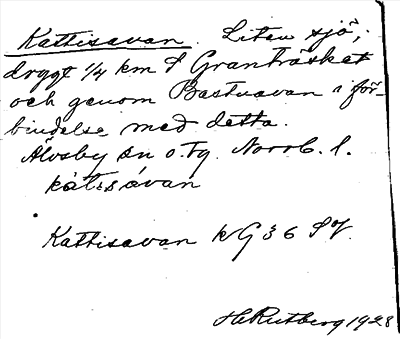 Kattisavan. Liten sjö,
drygt 1/4 km S Granträsket
och genom Bastusavan i för-
bindelse med detta.
Älvsby sn o. tg. Norrb. l.
kát:sávan
Kattisavan kG 36 SV
H Rutberg 1928